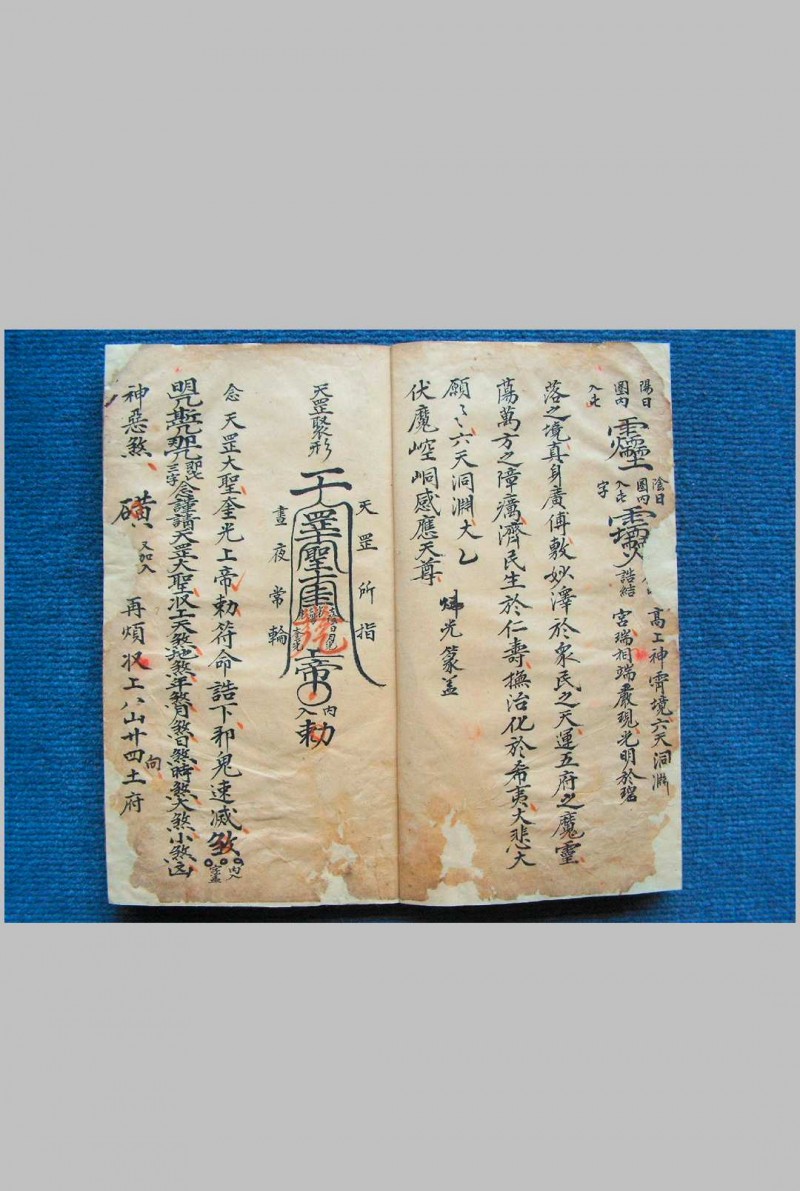 陽日
圈内
入此
陰日
圈内
入此
字
誥結
髙上神霄境六天洞淵
宮瑞相端嚴現光明於
落之境真身廣傅敷妙澤於衆民之天運五府之魔靈
蕩萬方之障癘濟民生於仁壽撫治化於希夷大悲大
願〻六天洞淵大乙
伏魔崆峒感應天尊
光篆盖
天罡所指
天罡聖
帝
内
入
勅
晝夜常輪
天罡聚形
念天罡大聖金光上帝勅符命誥下邪鬼速滅煞
内入
三字念謹請天罡大聖収上天煞地煞年煞月煞日煞時煞大煞小煞凶
神惡煞
又加入
再煩収上八山廿四向土府